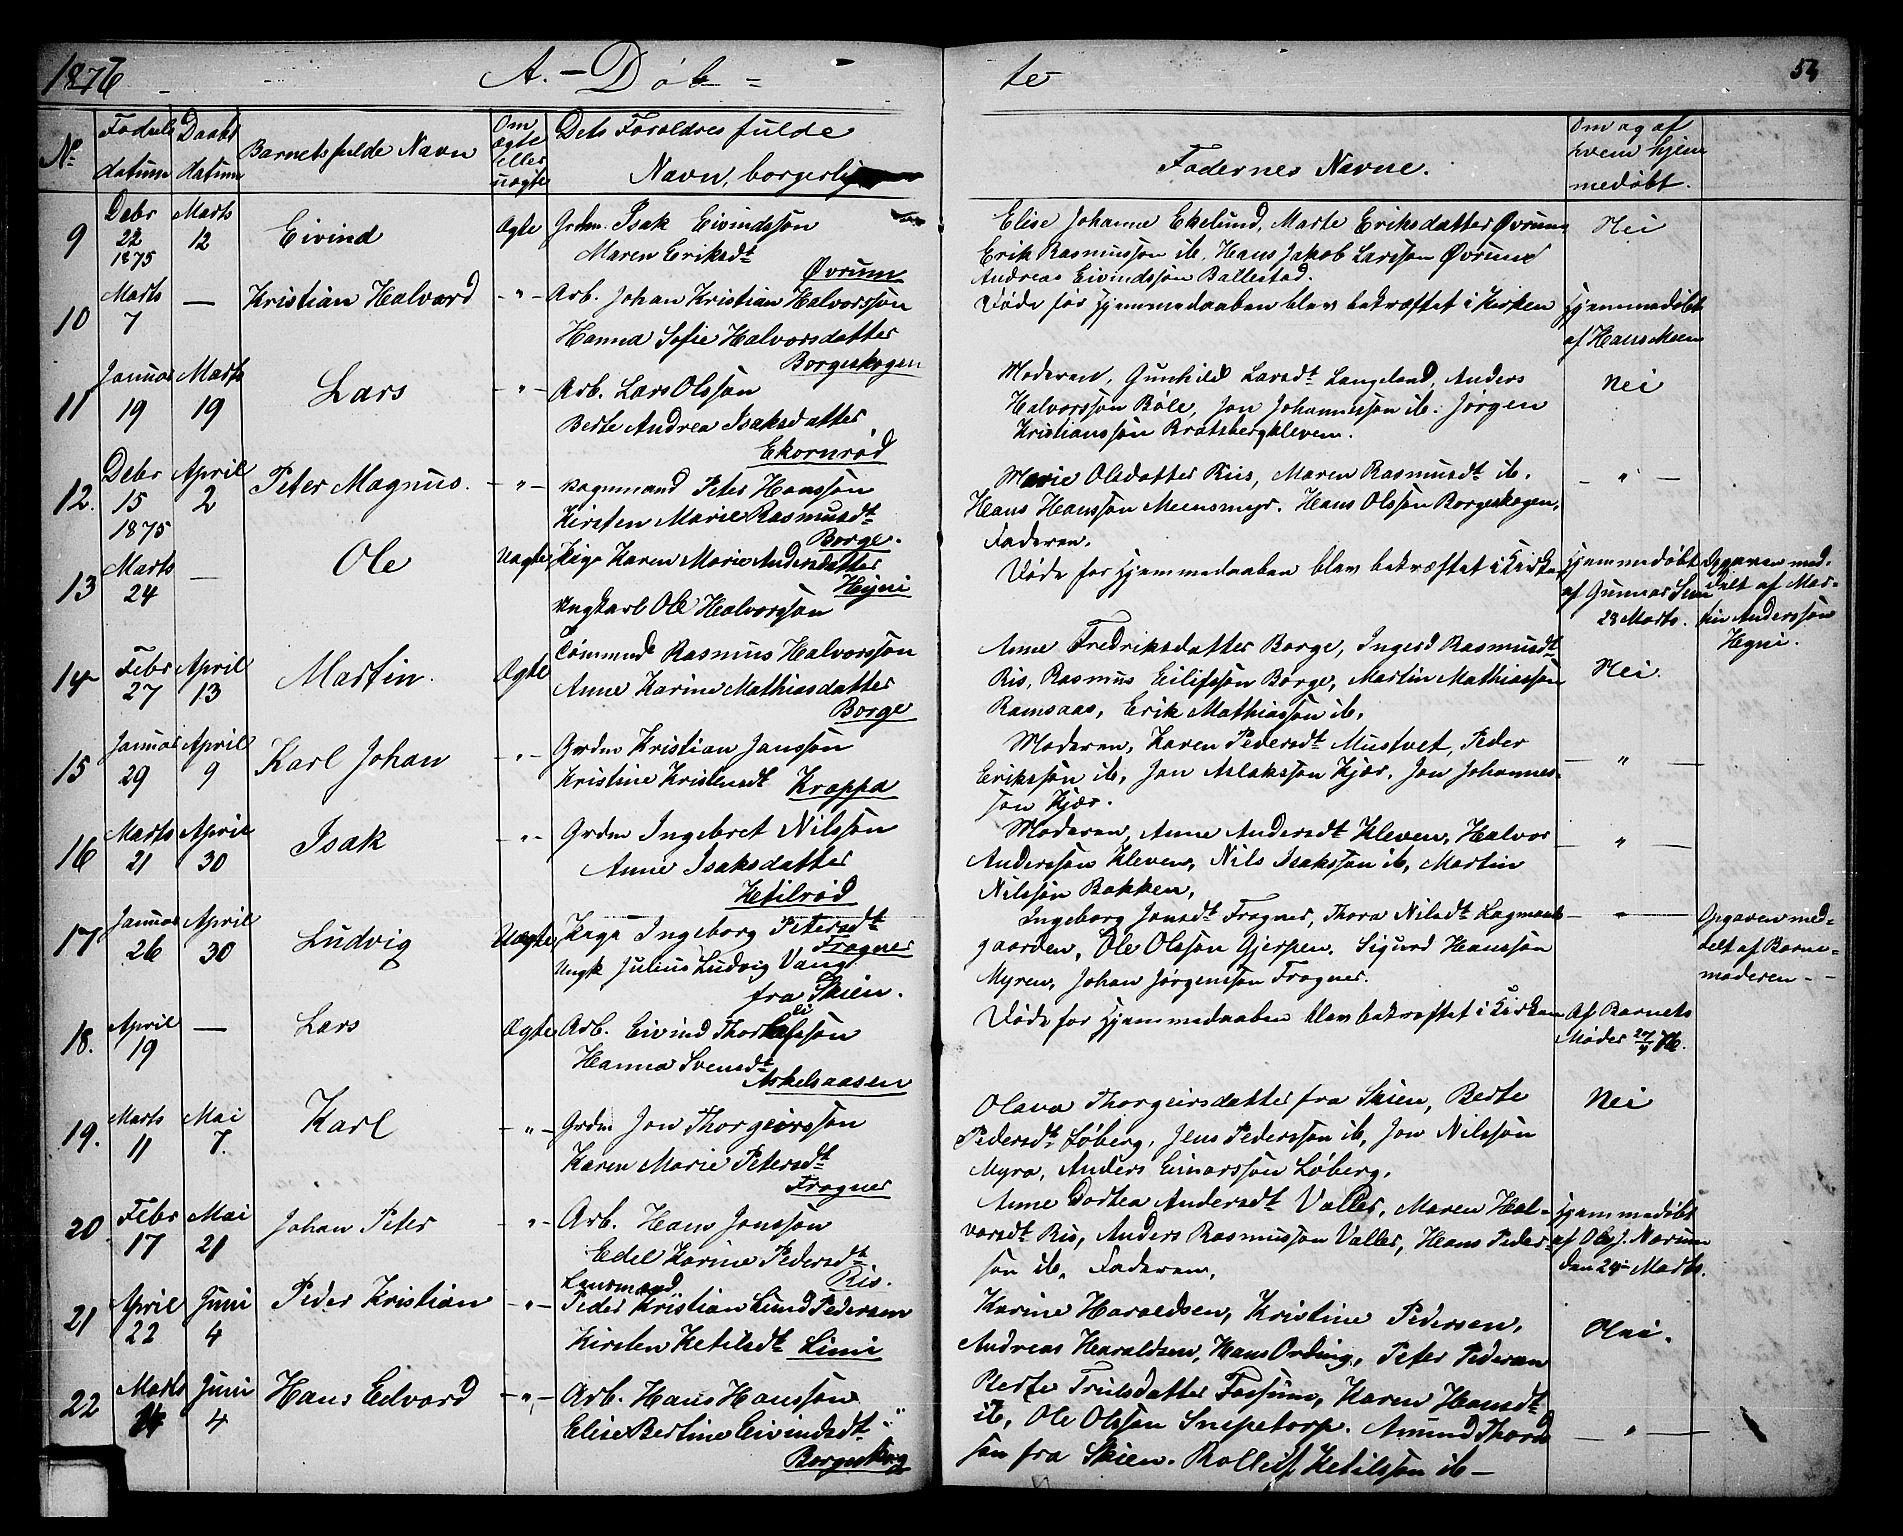 1876 A. - Døb = te 54
No Fødsels datum Daabs datum Barnets fulde Navn Om ægte eller uægte Dets Forældres fulde Navn, borgerlig Fadernes Navne. Om og af hvem hjemmedøbt.
9 Debr 22 1875 Marts 12 Eivind Ægte Grdm. Isak Eivindssøn
Maren Eriksdt
Øvrum
Elise Johanne Ekelund, Marte Eriksdatter Øvrum
Erik Rasmussøn ib, Hans Jakob Larssøn Øvrum
Andreas Eivindssøn Ballestad.
Nei
10 Marts 7 — Kristian Halvard -"- Arb. Johan Kristian Halvorssøn
Hanna Sofie Halvorsdatter
Borgeskogen
Døde før Hjemmedaaben blev bekræftet i Kirken
Hjemmedøbt
af Hans Moen
11 Januar 19 Marts 19 Lars -"- Arb. Lars Olssøn
Berte Andrea Isaksdatter
Ekornrød
Moderen, Gunhild Larsdt Langeland, Anders
Halvorssøn Bøle, Jon Johannessøn ib. Jørgen
Kristianssøn Bratsbergkleven.
Nei
12. Debr 15 1875 April 2 Peter Magnus. -"- Peter Hanssøn
Kirsten Marie Rasmusdt
Borge.
Marie Olsdatter Riis, Maren Rasmusdt ib.
Hans Hanssøn Meensmyr. Hans Olssøn Borgeskogen,
Faderen.
- " -
13 Marts 24 — Ole Uægte Pige Karen Marie Andersdatter
Høgni
Ungkarl Ole Halvorssøn
Døde før Hjemmedaaben blev bekræftet i Kirken
Hjemmedøbt
af Gunnar
28 Marts.
Opgaven med-
delt af Mar-
tin Anderssøn
Høgni.
14 Febr 27 April 13 Martin. Ægte Tømmmd Rasmus Halvorssøn
Anne Karine Mathiasdatter
Borge
Anne Fredriksdatter Borge, Ingerd Rasmusdt
Ris, Rasmus Eilifssøn Borge, Martin Mathiassøn
Ramsaas, Erik Mathiassøn ib,
Nei.
15 Januar 29 April 9 Karl Johan -"- Grdm Kristian Janssøn
Kristine Kristensdt Kroppa
Moderen, Karen Pedersdt Mustvet, Peder
Erikssøn ib, Jan Aslakssøn Kjær, Jon Johannes-
søn Kjær.
- " -
16 Marts 21 April 30 Isak -"- Grdm Ingebret Nilssøn
Anne Isaksdatter
Ketilrød
Moderen, Anne Andersdt Kleven, Halvor
Anderssøn Kleven, Nils Isakssøn ib, Martin
Nilssøn Bakken,
- " -
17 Januar 26 April 30 Ludvig Uægte Pige Ingeborg Petersdt
Fragner
Ungk Julius Ludvig Vang
fra Skien.
Ingeborg Jansdt Fragner, Thora Nilsdt Lagmans-
gaarden, Ole Olssøn Gjerpen, Sigurd Hanssøn
Myren, Johan Jørgenssøn Fragner.
- " -
Opgaven med-
delt af Barne-
moderen - -
18. April 19 — Lars Ægte Arb. Eivind
Hanna Svensdt
Askelsaasen
Døde før Hjemmedaaben blev bekræftet i Kirken
Af Barnets
Moder 27/4 76.
19. Marts 11 Mai 7. Karl -"- Grdm Jon Thorgeirssøn
Karen Marie Petersdt
Fragner
Olava Thorgeirsdatter fra Skien, Berte
Pedersdt Løberg, Jens Pederssøn ib, Jon Nilssøn
Myra, Anders Einarssøn Løberg,
Nei
20 Febr 17 Mai 21 Johan Peter -"- Arb. Hans Janssøn
Edel Karine Pedersdt
Ris.
Anne Dortea Andersdt Valler, Maren Hal-
vorsdt Ris, Anders Rasmussøn Valler, Hans Peder-
søn ib, Faderen,
Hjemmedøbt
af Ole J. Nærum
den 24 Marts.
21 April 22 Juni 4 Peder Kristian -"- Lensmand
Peder Kristian Lund Pedersen
Kirsten Ketilsdt Limi
Karine Haraldsen, Kristine Pedersen,
Andreas Haraldsen, Hans Ording, Peter Pedersen
Nei.
22 Marts 14 Juni 4 Hans Edvard -"- Arb. Hans Hanssøn
Elise Bertine Eivindsdt
Borgeskog
Berte Trulsdatter Fossum, Karen Hansdt
ib, Ole Olssøn Snipetorp. Amund Thord
søn fra Skien. Rolleif Ketilssøn ib —
- " -